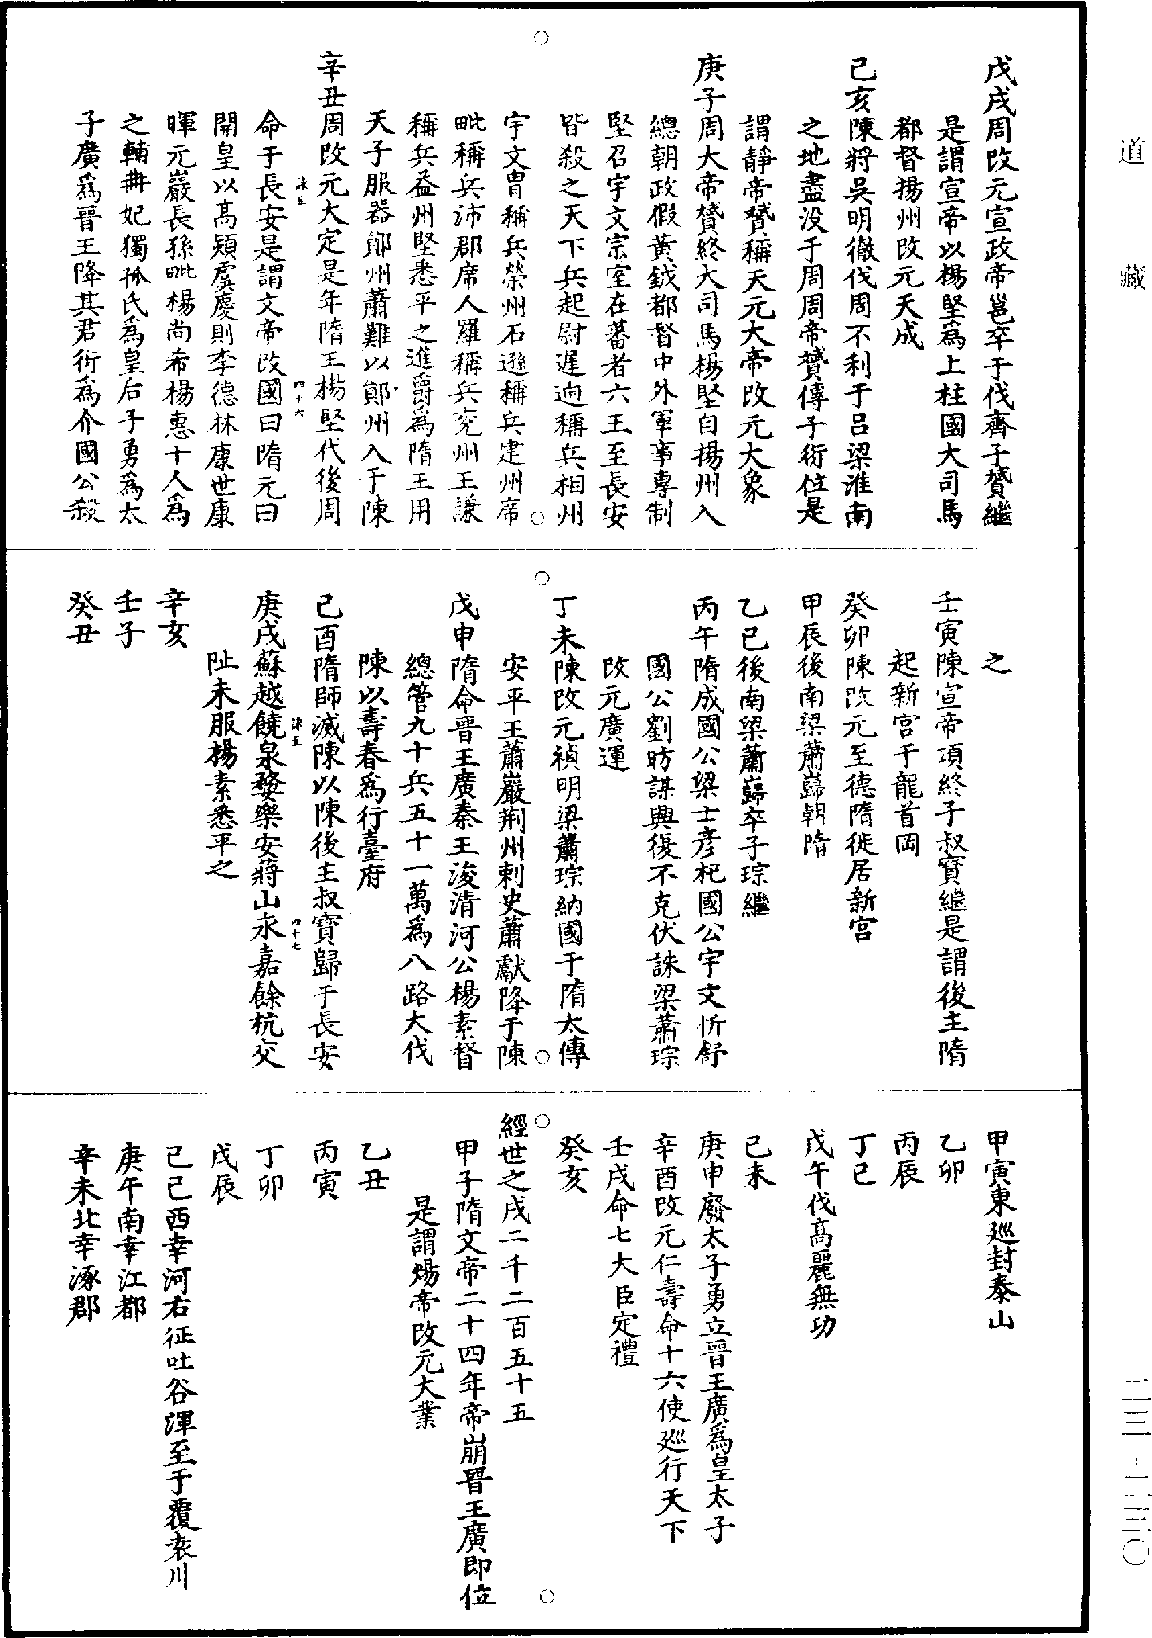 道藏
二三-二三〇
戊戌周改元宣政帝邕卒于伐齊子贇繼
是謂宣帝以楊堅爲上柱國大司馬
都督揚州改元天成
己亥陳將吳明徹伐周不利于呂梁淮南
之地盡没于周周帝贇傳子衍位是
謂靜帝贇稱天元大帝改元大象
庚子周大帝贇終大司馬楊堅自揚州入
總朝政假黃鉞都督中外軍事專制
堅召宇文宗室在蕃者六王至長安
皆殺之天下兵起尉遲迥稱兵相州
宇文胄稱兵榮州石遜稱兵建州席
毗稱兵沛郡席人羅稱兵兖州王謙
稱兵益州堅悉平之進爵爲隋王用
天子服器鄖州蕭難以鄖州入于陳
辛丑周改元大定是年隋王楊堅代後周
命于長安是謂文帝改國曰隋元曰
開皇以高熲虞慶則李德林康世康
暉元巖長孫毗楊尚希楊惠十人爲
之輔冊妃獨孤氏爲皇后子勇爲太
子廣爲晉王降其君衍爲介國公殺
之
壬寅陳宣帝頊終子叔寶繼是謂後主隋
起新宫于龍首岡
癸卯陳改元至德隋徙居新宫
甲辰後南梁蕭巋朝隋
乙巳後南梁蕭巋卒子琮繼
丙午隋成國公梁士彥杞國公宇文忻舒
國公劉昉謀興復不克伏誅梁蕭琮
改元廣運
丁未陳改元禎明梁蕭琮納國于隋太傅
安平王蕭巖荆州刺史蕭獻降于陳
戊申隋命晉王廣秦王浚清河公楊素督
總管九十兵五十一萬爲八路大伐
陳以壽春爲行臺府
己酉隋師滅陳以陳後主叔寶歸于長安
庚戌蘇越饒泉婺樂安蔣山永嘉餘杭交
阯未服楊素悉平之
辛亥
壬子
癸丑
甲寅東巡封泰山
乙卯
丙辰
丁巳
戊午伐高麗無功
己未
庚申廢太子勇立晉王廣爲皇太子
辛酉改元仁壽命十六使巡行天下
壬戌命七大臣定禮
癸亥
經世之戌二千二百五十五
甲子隋文帝二十四年帝崩晉王廣即位
是謂煬帝改元大業
乙丑
丙寅
丁卯
戊辰
己巳西幸河右征吐谷渾至于覆袁川
庚午南幸江都
辛未北幸涿郡